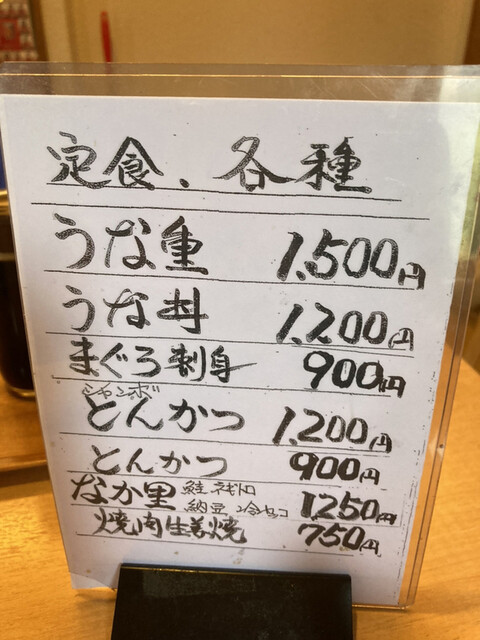 定食、各種
うな重 1,500円
うな丼 1,200円
まぐろ刺身 900円
ジャンボ
とんかつ 1,200円
とんかつ 900円
なか里 鮭
納豆 冷ヤッコ 1250円
焼肉生姜焼 750円